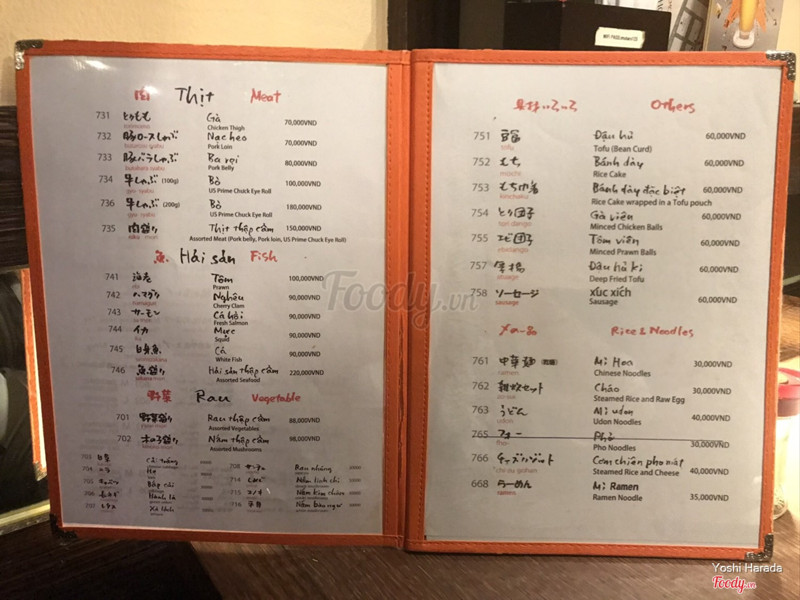 肉 Thịt Meat
731 とりもも Gà 70,000VND
Chicken Thigh
732 豚ロースしゃぶ Nạc heo 70,000VND
Pork Loin
733 豚バラしゃぶ Ba rọi 80,000VND
Pork Belly
734 牛しゃぶ (100g) Bò 100,000VND
US Prime Chuck Eye Roll
736 牛しゃぶ (200g) Bò 180,000VND
US Prime Chuck Eye Roll
735 肉盛り Thịt thập cẩm 150,000VND
Assorted Meat (Pork belly, Pork loin, US Prime Chuck Eye Roll)
魚 Hải sản Fish
741 海老 Tôm 100,000VND
Prawn
742 ハマグリ Nghêu 90,000VND
Cherry Clam
743 サーモン Cá hồi 90,000VND
Fresh Salmon
744 イカ Mực 90,000VND
Squid
745 白身魚 Cá 90,000VND
White Fish
746 魚盛り Hải sản thập cẩm 220,000VND
Assorted Seafood
野菜 Rau Vegetable
701 野菜盛り Rau thập cẩm 88,000VND
Assorted Vegetables
702 木の子盛り Nấm thập cẩm 98,000VND
Assorted Mushrooms
703 白菜 Cải trắng
704 ニラ Hẹ
705 キャベツ Bắp cải
706 長ネギ Hành lá
707 レタス
714 Nấm linh chi
715 エノキ Nấm kim châm
716 Nấm bào ngư
Others
751 豆腐 Đậu hủ 60,000VND
tofu Tofu (Bean Curd)
752 もち Bánh dày 60,000VND
mochi Rice Cake
753 もち巾着 Bánh dày đặc biệt 60,000VND
kinchaku Rice Cake wrapped in a Tofu pouch
754 とり団子 Gà viên 60,000VND
tori dango Minced Chicken Balls
755 エビ団子 Tôm viên 60,000VND
Minced Prawn Balls
757 厚揚 Đậu hủ ki 60,000VND
Deep Fried Tofu
758 ソーセージ xúc xích 60,000VND
sausage Sausage
〆の一品 Rice & Noodles
761 中華麺 Mì Hoa 30,000VND
ramen Chinese Noodles
762 雑炊セット Cháo 30,000VND
Steamed Rice and Raw Egg
763 うどん Mì udon 40,000VND
udon Udon Noodles
765 フォー Phở 30,000VND
Pho Pho Noodles
766 チーズリゾット Cơm chiên pho mát 40,000VND
Steamed Rice and Cheese
668 らーめん Mì Ramen 35,000VND
ramen Ramen Noodle
Foody.vn
Yoshi Harada
Foody.vn